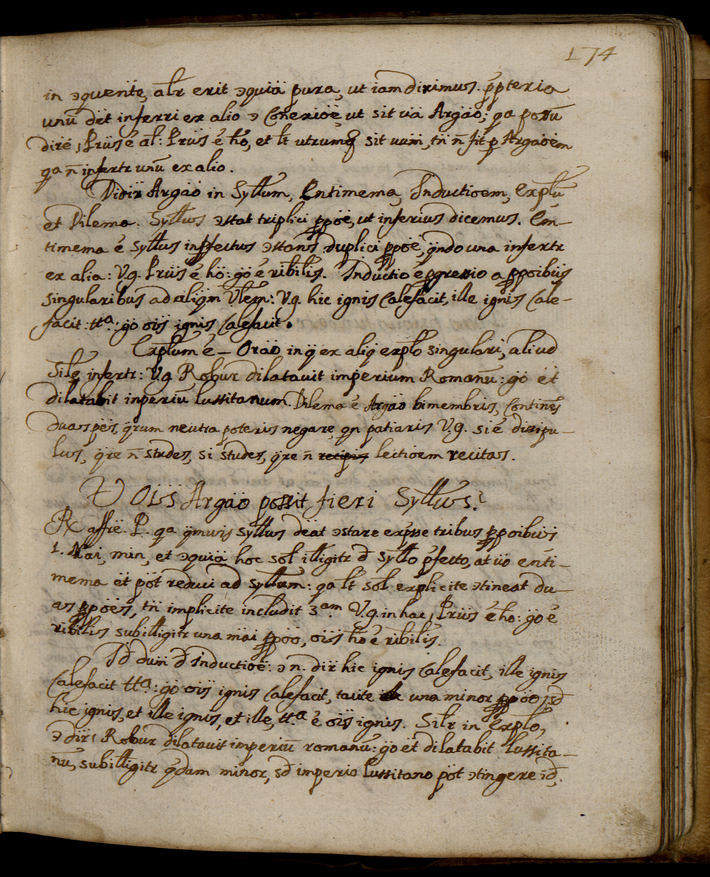 174
in ɔquentē, alr erit ɔquiā pura, ut iam diximus. ppteria
unū dēt inferri ex alio ɔ Conexioē, ut sit via Argāo; qa possū
dirē, Pruś é al: Pruś é hō, et lt utrumq sit uum, tn n̄ fit p Argāoem
qa n̄ infertr unū ex alio.
Dividir Argāo in Syllum, Entimema, Inductioem, Explū
et Dilema. Syllus ɔstat triplici ppōe, ut inferius dicemus. En-
timema é Syllus inpfectus ɔstans duplici ppōe, qndo una infertr
ex alia: Vg. Pruś é hō: gō é ribilis. Inductio é pgresio a ppoibus
singularibus ad aliqm Vlem: Vg. hic ignis Calefacit, ille ignis Cale-
facit: tta: gō oīs ignis Calefacit.
Explum é – Orāo in q ex aliq explo singulari, aliud
Sile infertr: Vg Robur dilatavit imperium Romanū: gō et
dilatabit inperiū Lussitanum. Dilema é Argāo bimembris, Continēs
duas pēs, qrum neutra poteris negare, qn patiaris Vg. si é discipu-
lus, qre n̄ studes, si studes, qre n̄ lectioem recitas.
V Oīs Argāo possit fieri Syllus?
Rx affir. P. qa qmvis Syllus dēat ɔstare expsse tribus ppoibus
1. Mai, min, et ɔquiā hoc sol illigitr d Syllo pfecto, at vō enti-
mema et pōt reduci ad Syllum: qa lt sol explicite ɔtineat du-
as ppōes, tn implicite includit 3am Vg. in hac, Pruś é hō: gō é
ribilis subilligitr una māi ppōo, oīs hō é ribilis.
Id dum d Inductioē: ɔ n. dir hic ignis Calefacit, ille ignis
Calefacit tta: gō oīs ignis Calefacit, tacite una minor ppōo, sd
hic ignis, et ille ignis, et ille, tta é oīs ignis. Silr in explo,
ɔ dir: Robur dilatavit imperiū romanū: gō et dilatabit Lussita-
nū, subilligitr qdam minor, sd imperio Lussitano pōt ɔtingere id,